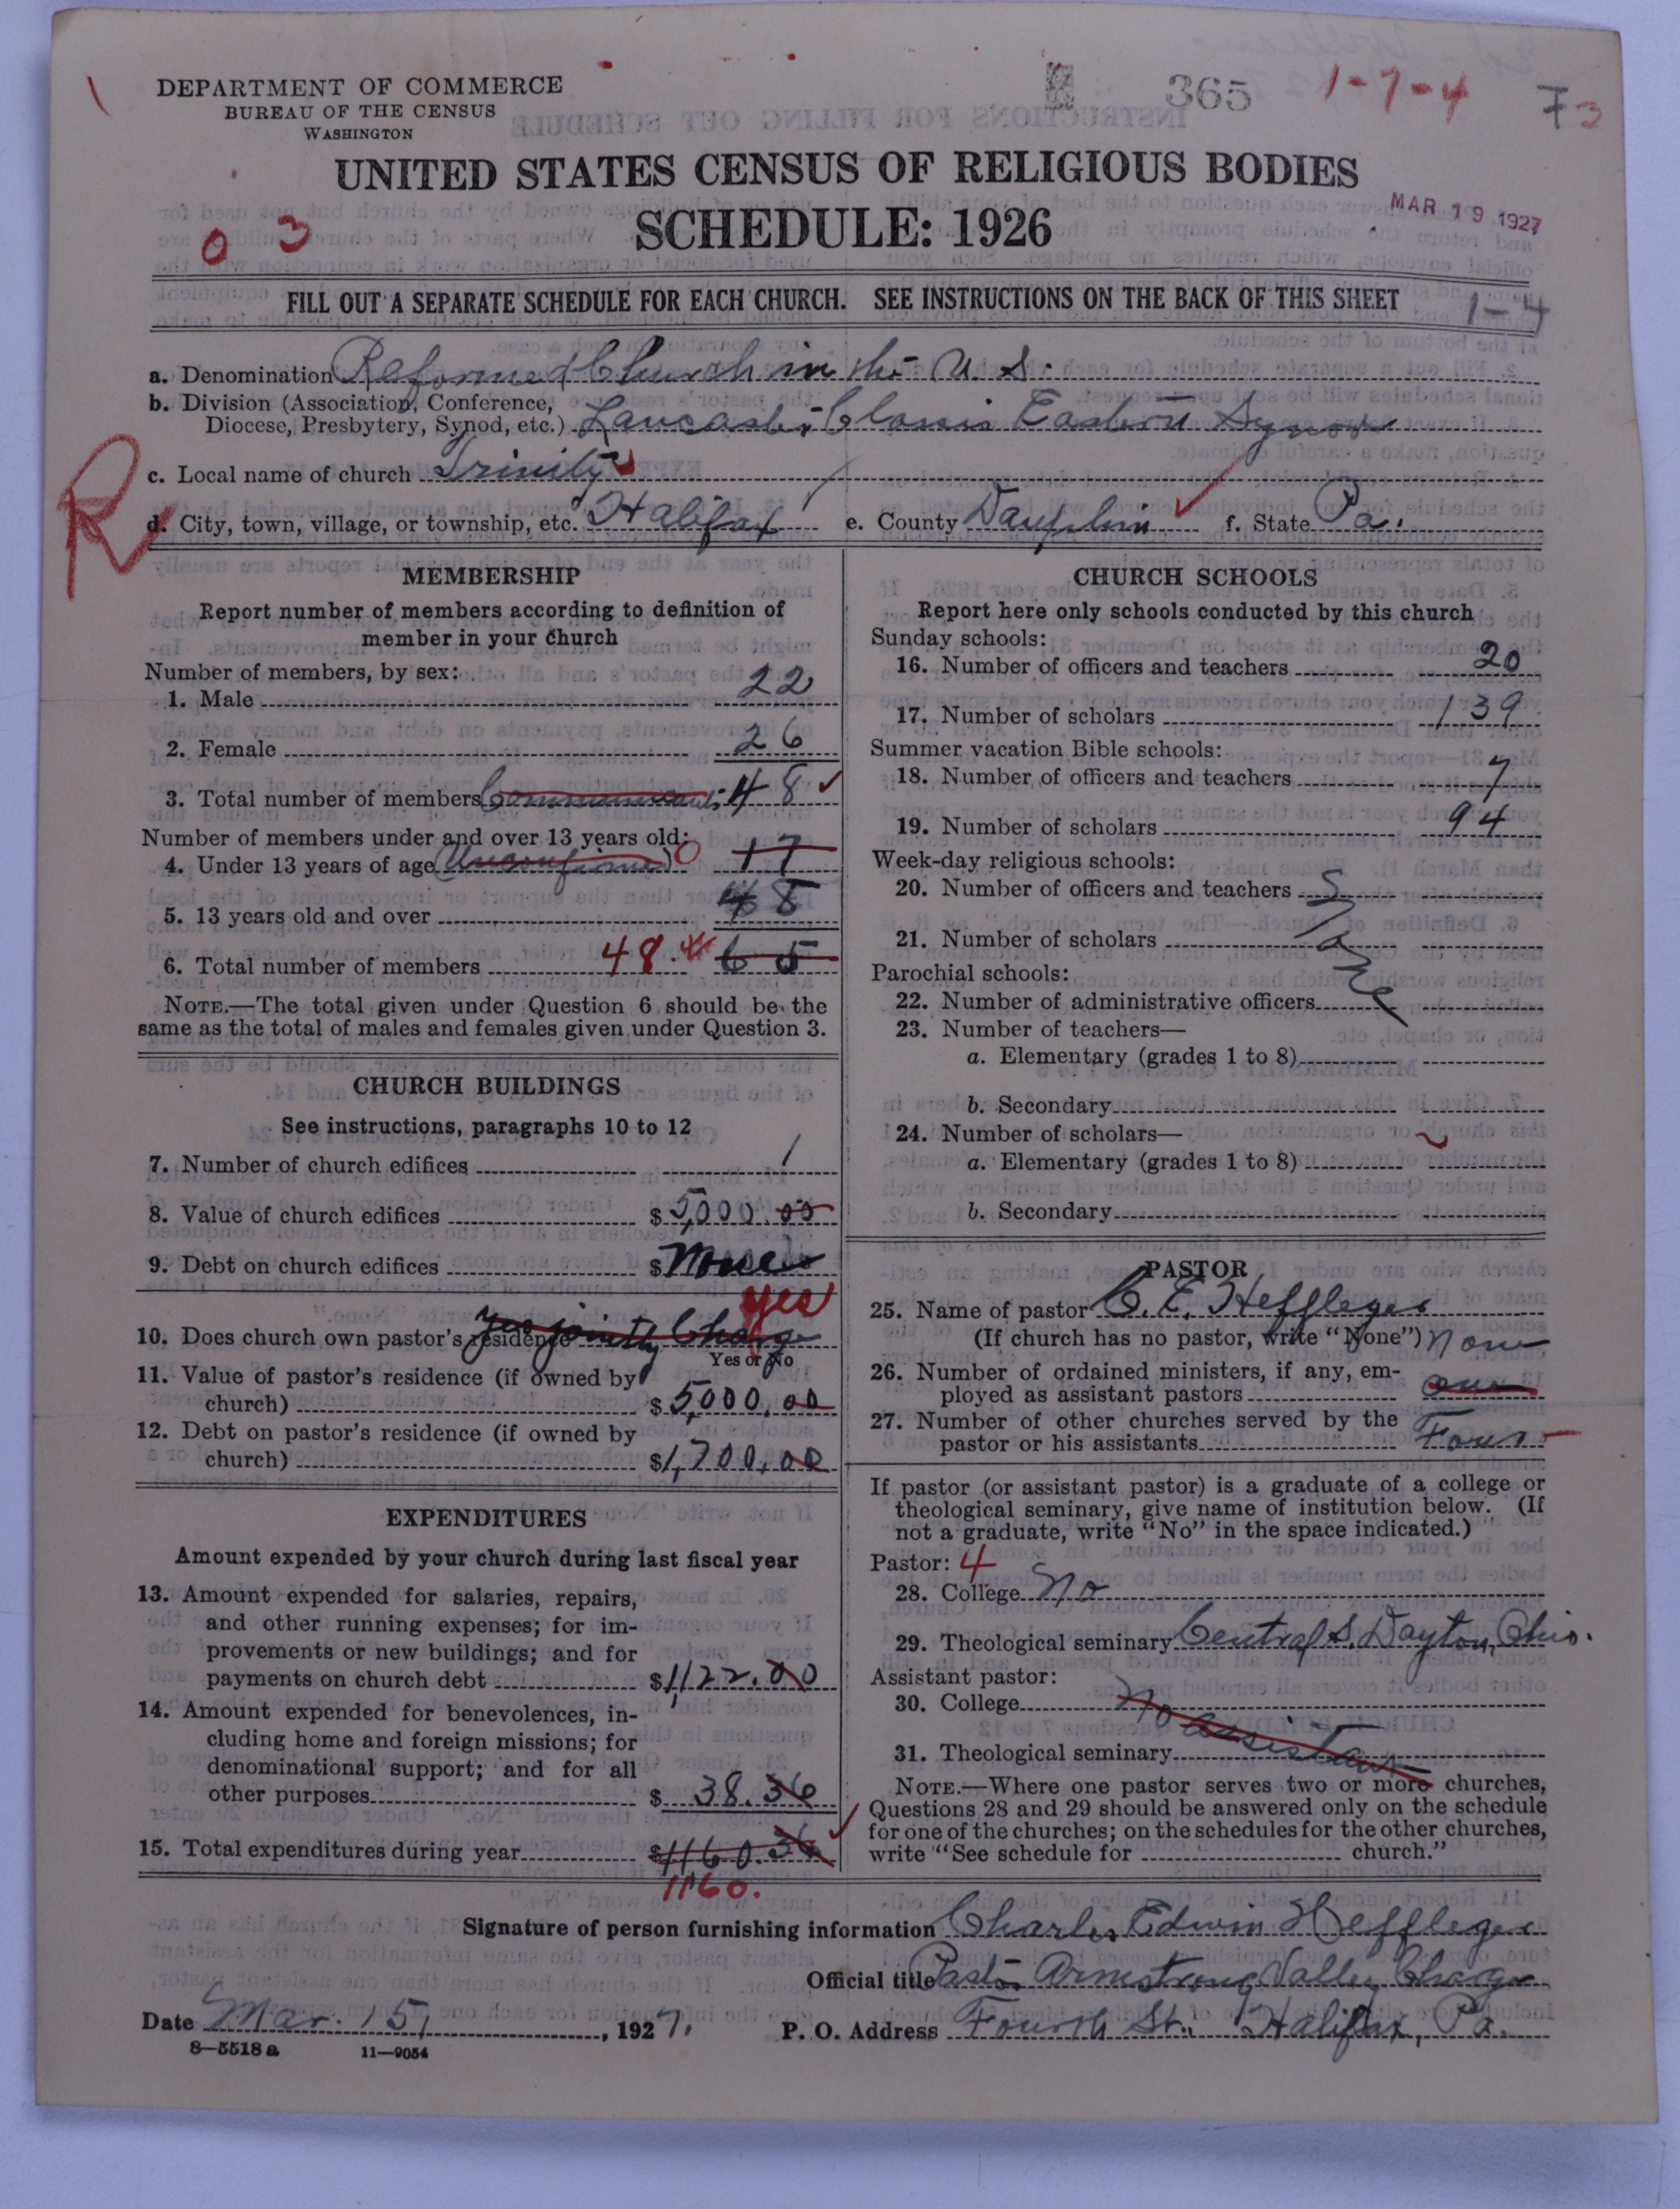 DEPARTMENT OF COMMERCE
BUREAU OF THE CENSUS
WASHINGTON
365
1-7-4
73
UNITED STATES CENSUS OF RELIGIOUS BODIES
SCHEDULE: 1926
MAR 19 1927
0 3
FILL OUT A SEPARATE SCHEDULE FOR EACH CHURCH. SEE INSTRUCTIONS ON THE BACK OF THIS SHEET
1-4
a. Denomination Reformed Church in the U. S.
b. Division (Association, Conference,
Diocese, Presbytery, Synod, etc.) Lancaster Classis Eastern Synod
c. Local name of church Trinity
R
d. City, town, village, or township, etc. Halifax e. County Dauphin f. State Pa.
MEMBERSHIP
Report number of members according to definition of
member in your church
Number of members, by sex:
1. Male 22
2. Female 26
3. Total number of members Communicants 48
Number of members under and over 13 years old:
4. Under 13 years of age (Unconfirmed) 0 17
5. 13 years old and over 48
6. Total number of members 48 65
NOTE.—The total given under Question 6 should be the
same as the total of males and females given under Question 3.
CHURCH BUILDINGS
See instructions, paragraphs 10 to 12
7. Number of church edifices 1
8. Value of church edifices $5,000.00
9. Debt on church edifices $None
yes
10. Does church own pastor's residence yes jointly Charge
Yes or No
11. Value of pastor's residence (if owned by
church) $5,000.00
12. Debt on pastor's residence (if owned by
church) $1,700.00
EXPENDITURES
Amount expended by your church during last fiscal year
13. Amount expended for salaries, repairs,
and other running expenses; for im-
provements or new buildings; and for
payments on church debt $1,122.00
14. Amount expended for benevolences, in-
cluding home and foreign missions; for
denominational support; and for all
other purposes $38.36
15. Total expenditures during year $1160.36
1160.
CHURCH SCHOOLS
Report here only schools conducted by this church
Sunday schools:
16. Number of officers and teachers 20
17. Number of scholars 139
Summer vacation Bible schools:
18. Number of officers and teachers 7
19. Number of scholars 94
Week-day religious schools:
20. Number of officers and teachers
21. Number of scholars Same
Parochial schools:
22. Number of administrative officers
23. Number of teachers—
a. Elementary (grades 1 to 8)
b. Secondary
24. Number of scholars—
a. Elementary (grades 1 to 8)
b. Secondary
PASTOR
25. Name of pastor C. E. Heffleger
(If church has no pastor, write "None") None
26. Number of ordained ministers, if any, em-
ployed as assistant pastors one
27. Number of other churches served by the
pastor or his assistants Four
If pastor (or assistant pastor) is a graduate of a college or
theological seminary, give name of institution below. (If
not a graduate, write "No" in the space indicated.)
Pastor: 4
28. College No
29. Theological seminary Central S. Dayton, Ohio.
Assistant pastor:
30. College No assistant
31. Theological seminary
NOTE.—Where one pastor serves two or more churches,
Questions 28 and 29 should be answered only on the schedule
for one of the churches; on the schedules for the other churches,
write "See schedule for church."
Signature of person furnishing information Charles Edwin Heffleger
Official title Pastor Armstrong Valley Charge
Date Mar. 15, 1927. P. O. Address Fourth St. Halifax, Pa.
8—5518 a 11—9054